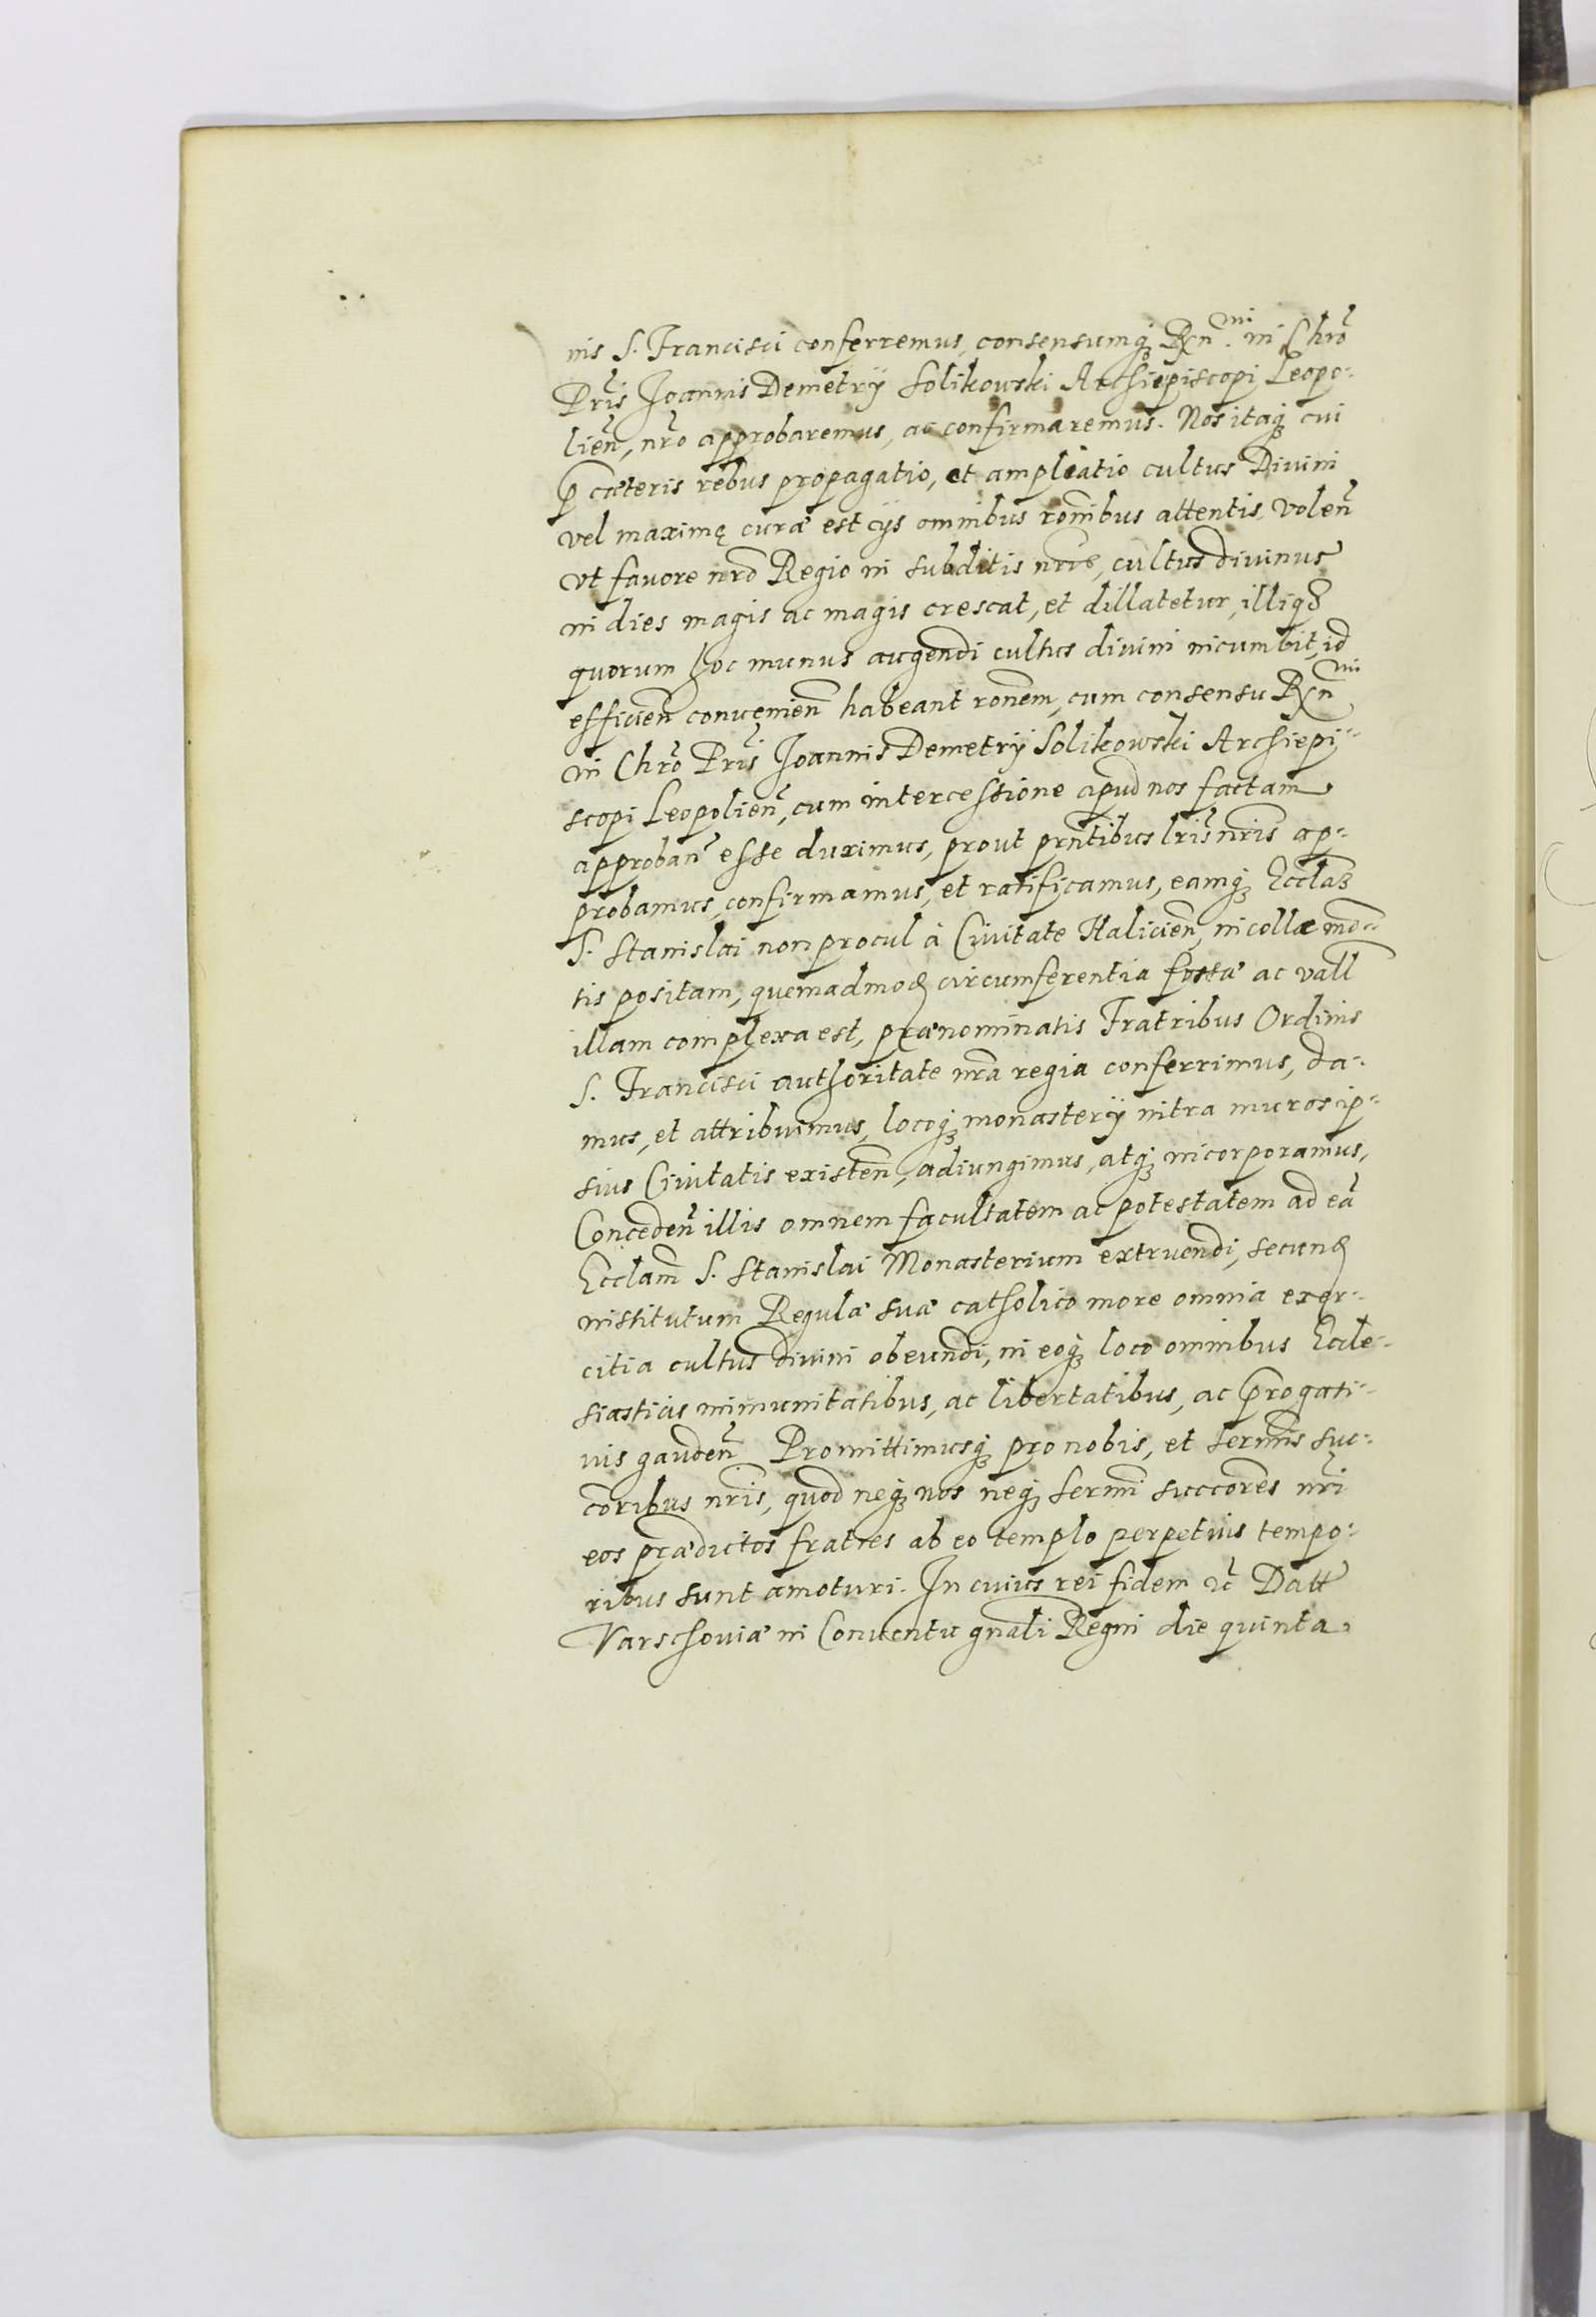 nis S. Francisci conferremus, consensumq₃ Rxn̄.mi in Chrō
Pris̄ Joannis Demetrÿ Solikowski Archiepiscopi Leopo-
lien̄, nr̄o approbaremus, ac confirmaremus. Nos itaq₃ cui
p̄ cæteris rebus propagatio, et ampliatio cultus Divini
vel maximę curæ est ijs omnibus ronibus attentis, volen̄
vt favore nrō Regio in subditis nris, cultus divinus
in dies magis ac magis crescat, et dillatetur, illiq₃
quorum hoc munus augendi cultus divini incumbit, id
efficien̄ convenien̄ habeant ronem, cum consensu Rxn̄mi
in Chrō Pris̄ Joannis Demetrÿ Solikowski Archiepi-
scopi Leopolien̄, cum intercessione apud nos factam
approban̄ esse duximus, prout prn̄tibus lris̄ nris̄ ap-
probamus, confirmamus, et ratificamus, eamq₃ Eccla₃
S. Stanislai non procul à Civitate Halicien̄, in collæ mō-
tis positam, quemadmoð circumferentia fossæ ac vall
illam complexa est, prænominatis Fratribus Ordinis
S. Francisci authoritate nrā regia conferrimus, da-
mus, et attribuimus, locoq₃ monasterÿ intra muros ip-
sius Civitatis existen̄, adiungimus, atq₃ incorporamus,
Conceden̄ illis omnem facultatem ac potestatem ad eā
Ecclam̄ S. Stanislai Monasterium extruendi, secunð
institutum Regulæ suæ catholico more omnia exer-
citia cultus divini obeundi, in eoq₃ loco omnibus Eccle-
siasticis immunitatibus, ac libertatibus, ac p̄rogati-
vis gauden̄ Promittimusq₃ pro nobis, et Sermis̄ suc-
coribus nris̄, quod neq₃ nos neq₃ Sermī succcores̄ nrī
eos prædictos fratres ab eo templo perpetuis tempo-
ribus sunt amoturi. In cuius rei fidem ec̄ Datt
Varschoviæ in Conventu gnāli Regni die quinta